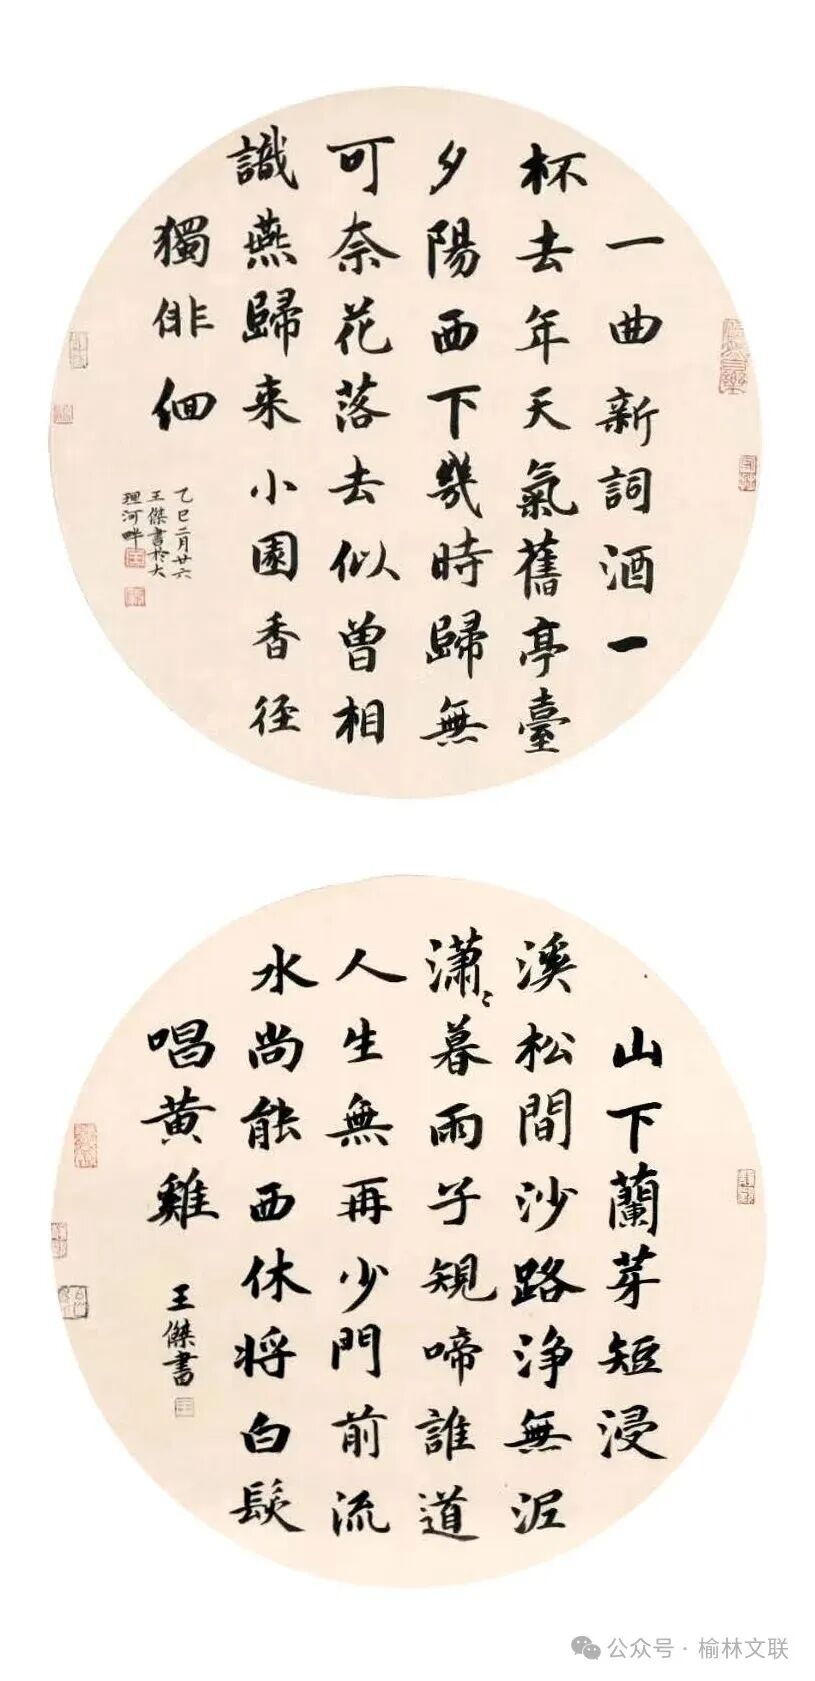 一曲新詞酒一
杯去年天氣舊亭臺
夕陽西下幾時歸無
可奈花落去似曾相
識燕歸来小園香径
獨徘徊
乙巳二月廿六
王傑書於大
理河畔
山下蘭芽短浸
溪松間沙路淨無泥
潇〻暮雨子規啼誰道
人生無再少門前流
水尚能西休将白髮
唱黄雞
王傑書
公众号·榆林文联